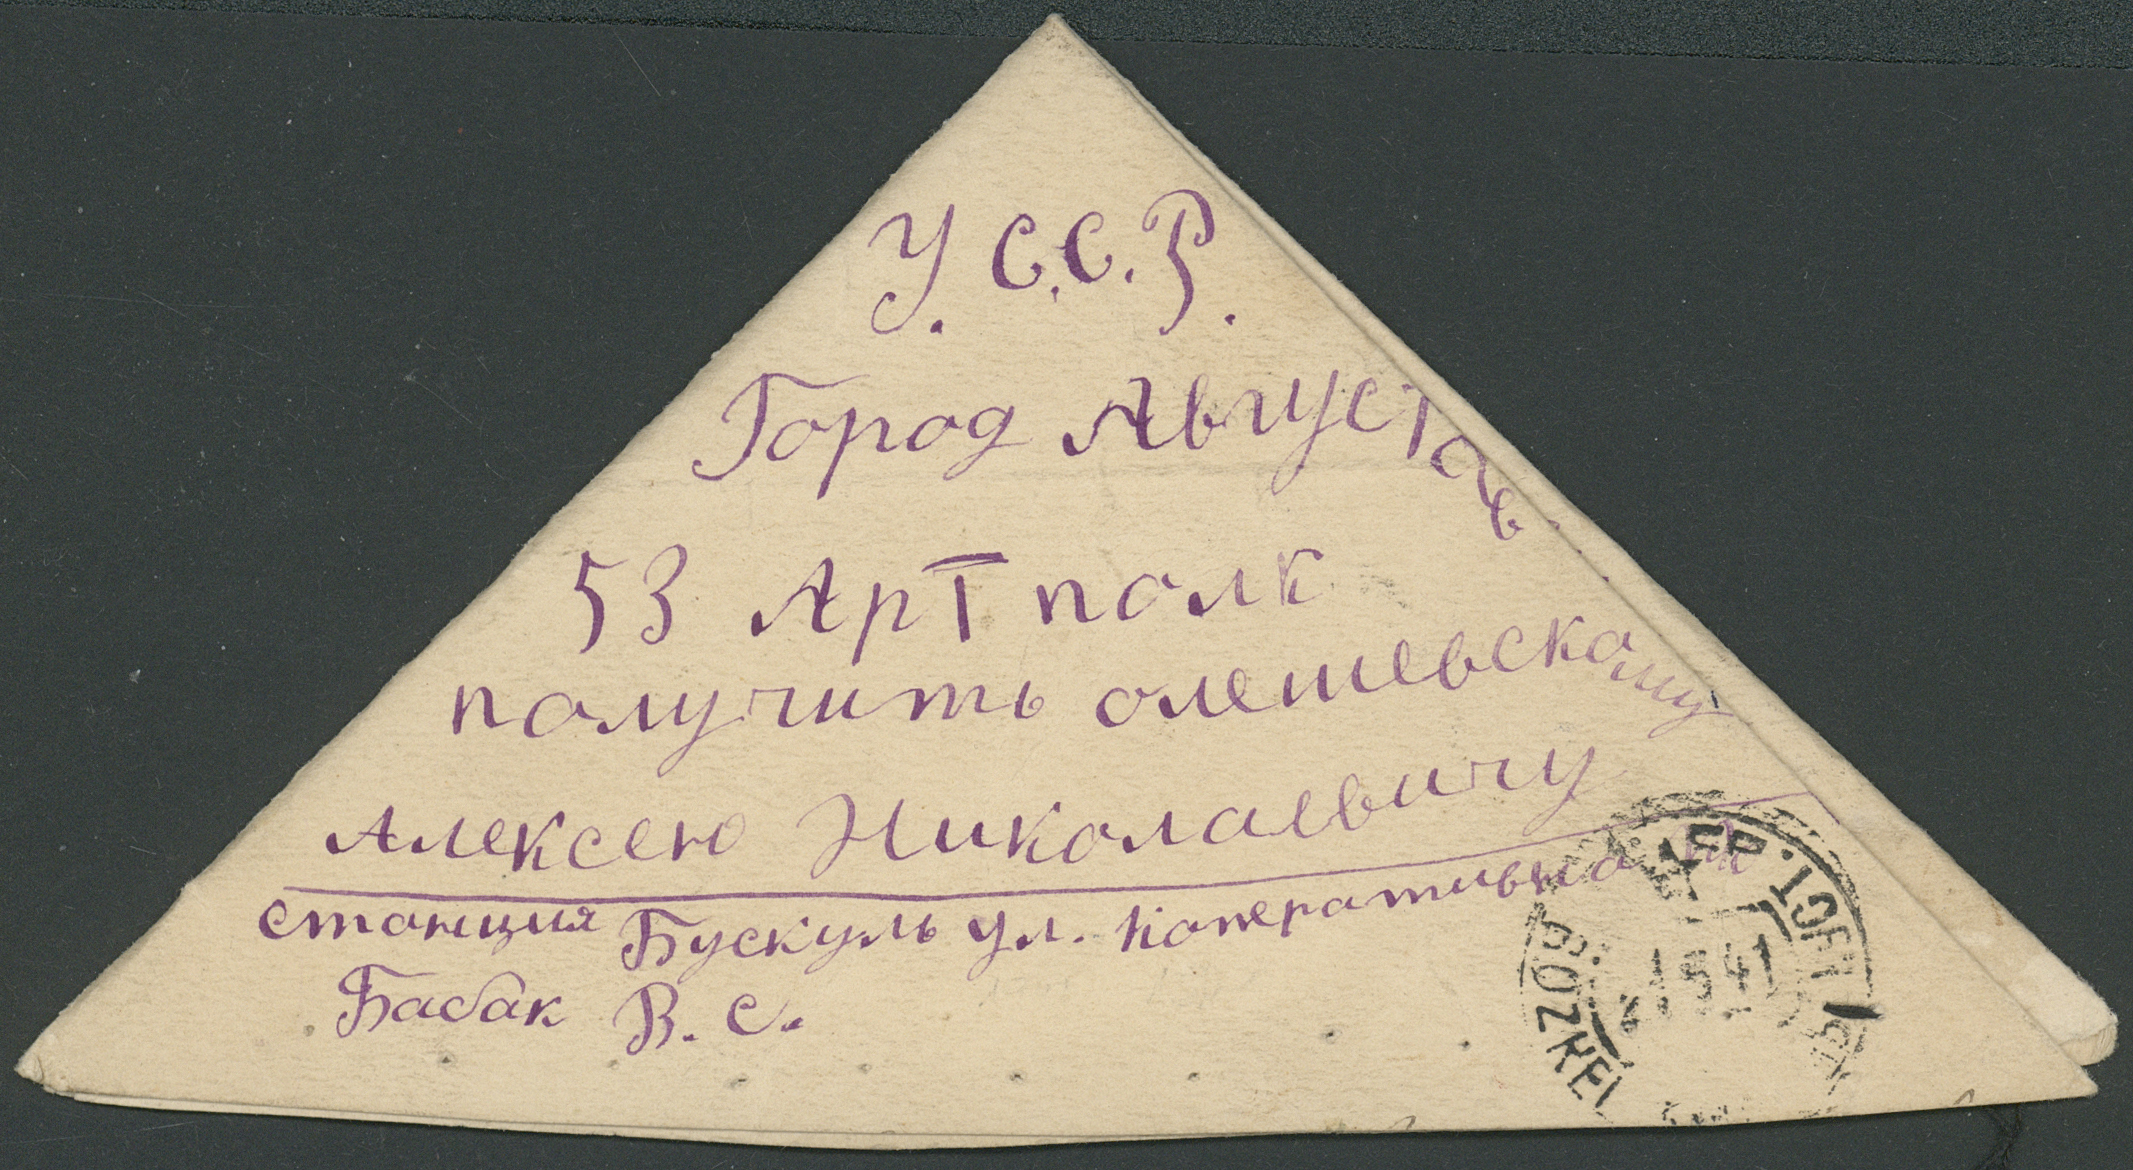 У.С.С.Р.
Город Августов.
53 Арт полк
получить олешевскому
Алексею Николаевичу
станция Бускуль ул. Коперативная
Бабак В. С.